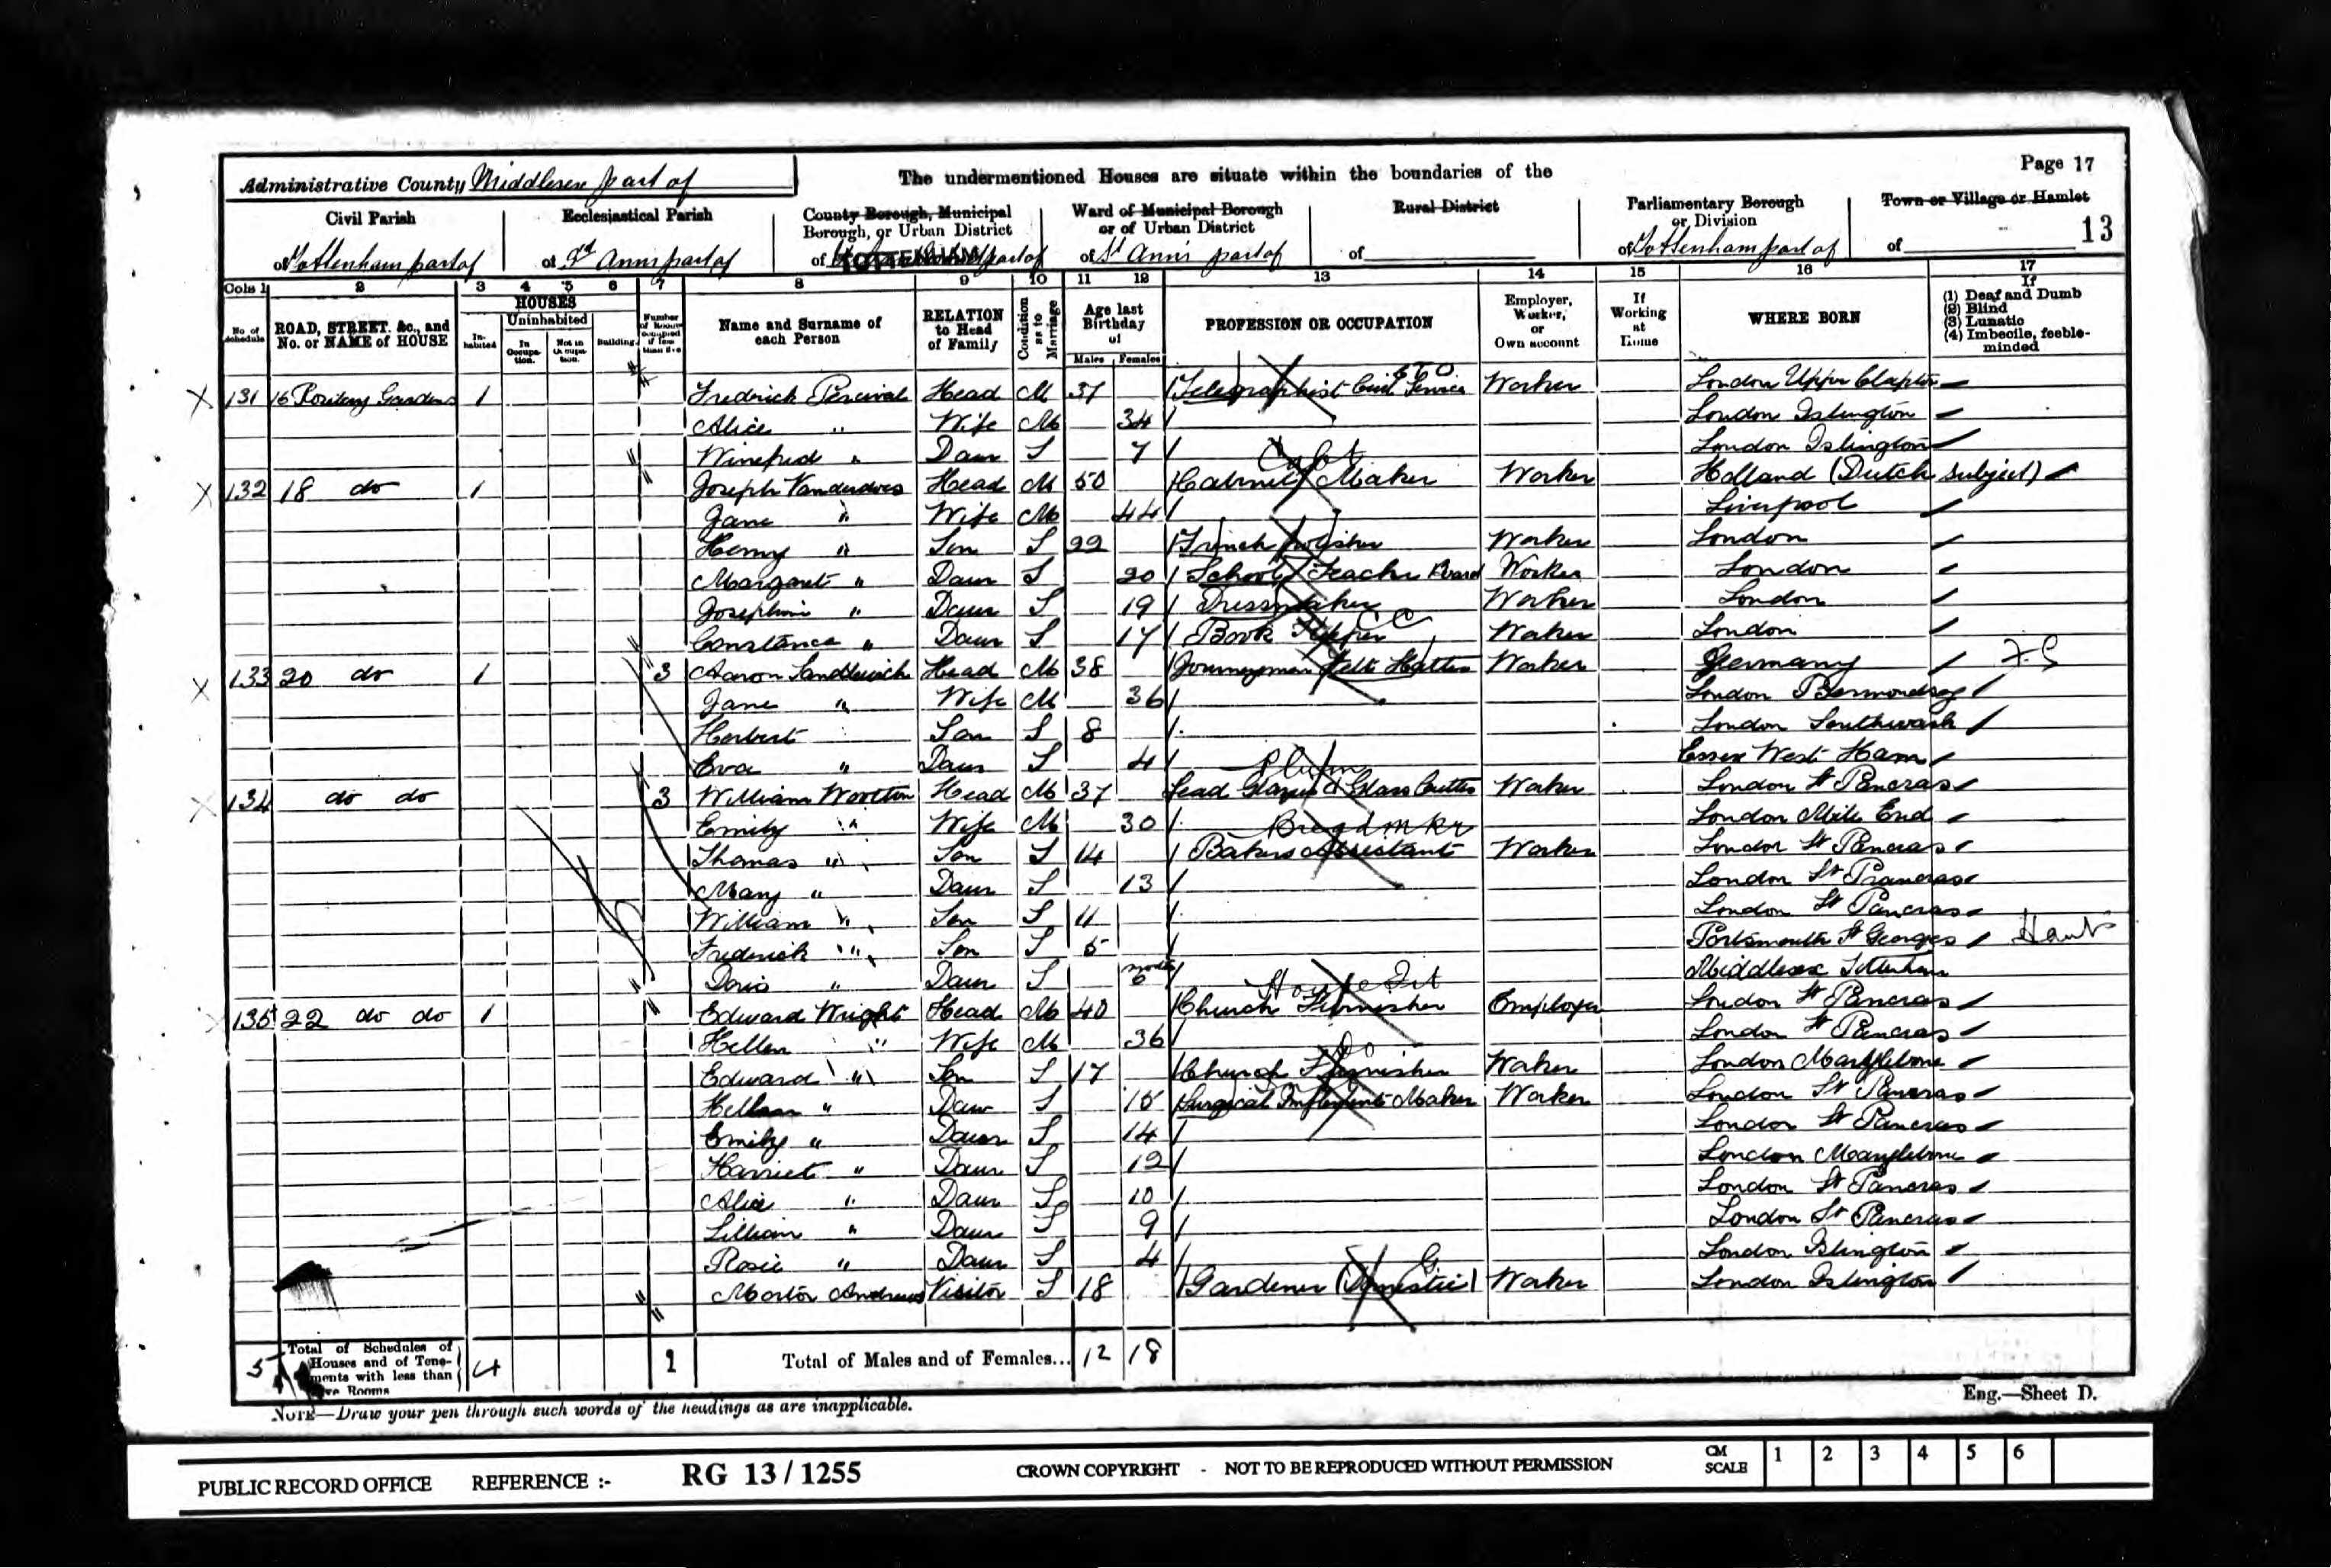 Page 17
Administrative County Middlesex part of
The undermentioned Houses are situate within the boundaries of the
Civil Parish
Ecclesiastical Parish
County Borough, Municipal Borough, or Urban District
Ward of Municipal Borough or of Urban District
Rural District
Parliamentary Borough or Division
Town or Village or Hamlet
13
of Tottenham part of
of St Anns part of
of TOTTENHAM part of
of St Ann's part of
of
of Tottenham part of
of
Cols 1 2 3 4 5 6 7 8 9 10 11 12 13 14 15 16 17
No. of Schedule
ROAD, STREET, &c., and No. or NAME of HOUSE
HOUSES
In-habited
Uninhabited
In Occupa-tion.
Not in Occupa-tion.
Building.
Number of Rooms occupied if less than five
Name and Surname of each Person
RELATION to Head of Family
Condition as to Marriage
Age last Birthday of
Males Females
PROFESSION OR OCCUPATION
Employer, Worker, or Own account
If Working at Home
WHERE BORN
If
(1) Deaf and Dumb
(2) Blind
(3) Lunatic
(4) Imbecile, feeble-minded
131 16 Gardens 1 Frederick Percival Head M 37 Telegraphist Civil Service Worker London Upper Clapton
Alice " Wife M 34 London Islington
Winefred " Daur S 7 London Islington
132 18 do 1 Joseph Head M 50 Cabinet Maker Worker Holland (Dutch Subject)
Jane " Wife M 44 Liverpool
Henry " Son S 22 French Polisher Worker London
Margaret " Daur S 20 School Teacher Board Worker London
Josephine " Daur S 19 Dressmaker Worker London
Constance " Daur S 17 Book Keeper Worker London
133 20 do 1 3 Aaron Head M 38 Journeyman Felt Hatter Worker Germany F.S
Jane " Wife M 36 London Bermondsey
Herbert Son S 8 London Southwark
Eva " Daur S 4 Essex West Ham
134 do do 3 William Wootton Head M 37 Lead Glazier & Glass Cutter Worker London St Pancras
Emily " Wife M 30 London Mile End
Breadmkr
Thomas " Son S 14 Bakers Assistant Worker London St Pancras
Mary " Daur S 13 London St Pancras
William " Son S 11 London St Pancras
Frederick " Son S 5 Portsmouth St Georges Hants
Doris " Daur S 6 mths Middlesex Tottenham
135 22 do do 1 Edward Wright Head M 40 Church Furnisher Employer London St Pancras
Hellen " Wife M 36 London St Pancras
Do
Edward " Son S 17 Church Furnisher Worker London Marylebone
Hellen " Daur S 15 Surgical Implements Maker Worker London St Pancras
Emily " Daur S 14 London St Pancras
Harriet " Daur S 12 London Marylebone
Alice " Daur S 10 London St Pancras
Lillian " Daur S 9 London St Pancras
Rosie " Daur S 4 London Islington
Andrews Visitor S 18 Gardener (Domestic) Worker London Islington
5 Total of Schedules of Houses and of Tene-ments with less than Five Rooms 4
Total of Males and of Females... 12 18
Eng.—Sheet D.
NOTE—Draw your pen through such words of the headings as are inapplicable.
PUBLIC RECORD OFFICE REFERENCE :- RG 13/1255 CROWN COPYRIGHT - NOT TO BE REPRODUCED WITHOUT PERMISSION
CM SCALE 1 2 3 4 5 6